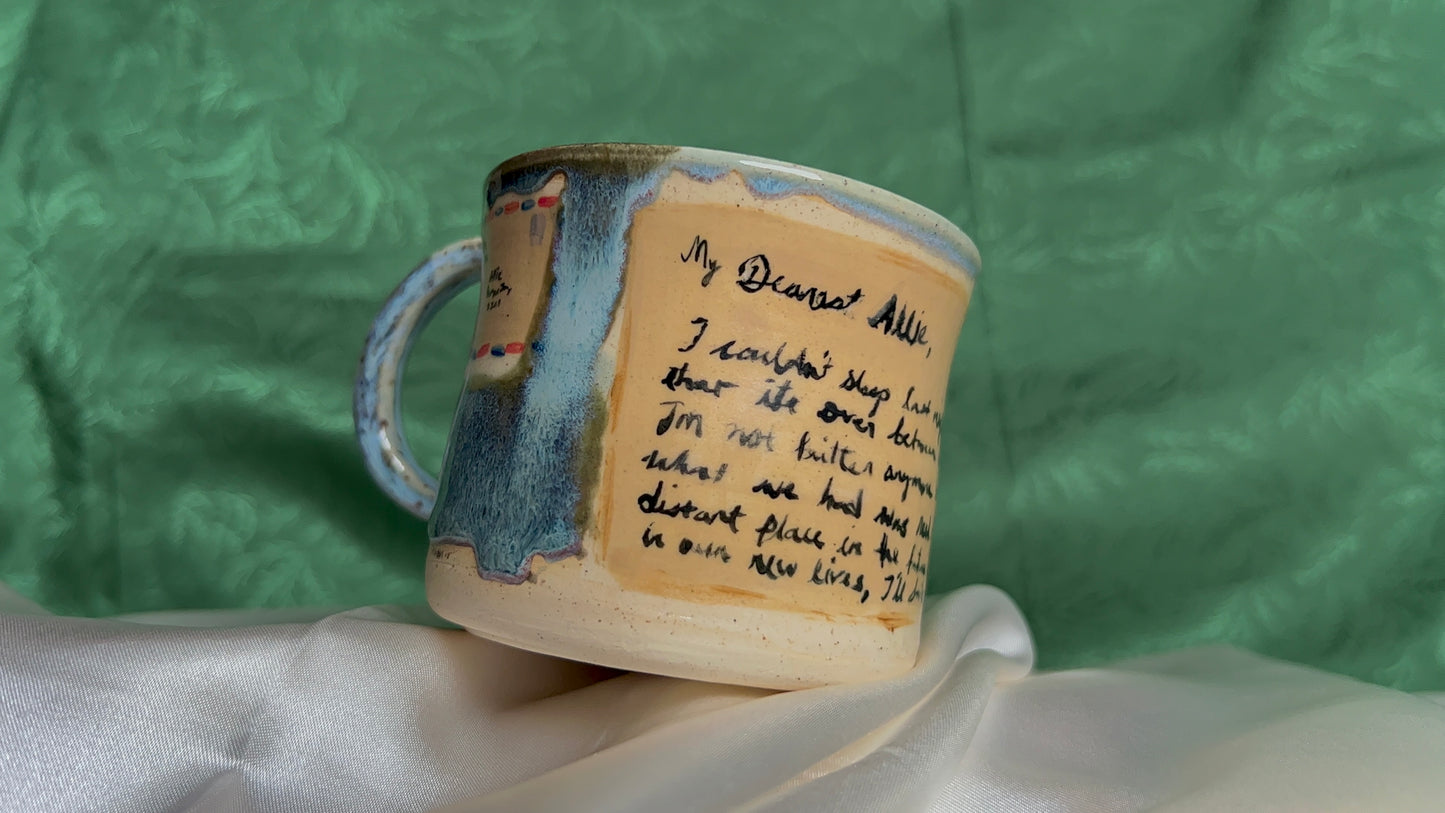 My Dearest Allie,
I couldn't sleep last
that its over between
I'm not bitter anymore
what we had was real
distant place in the future
in our new lives, I'll